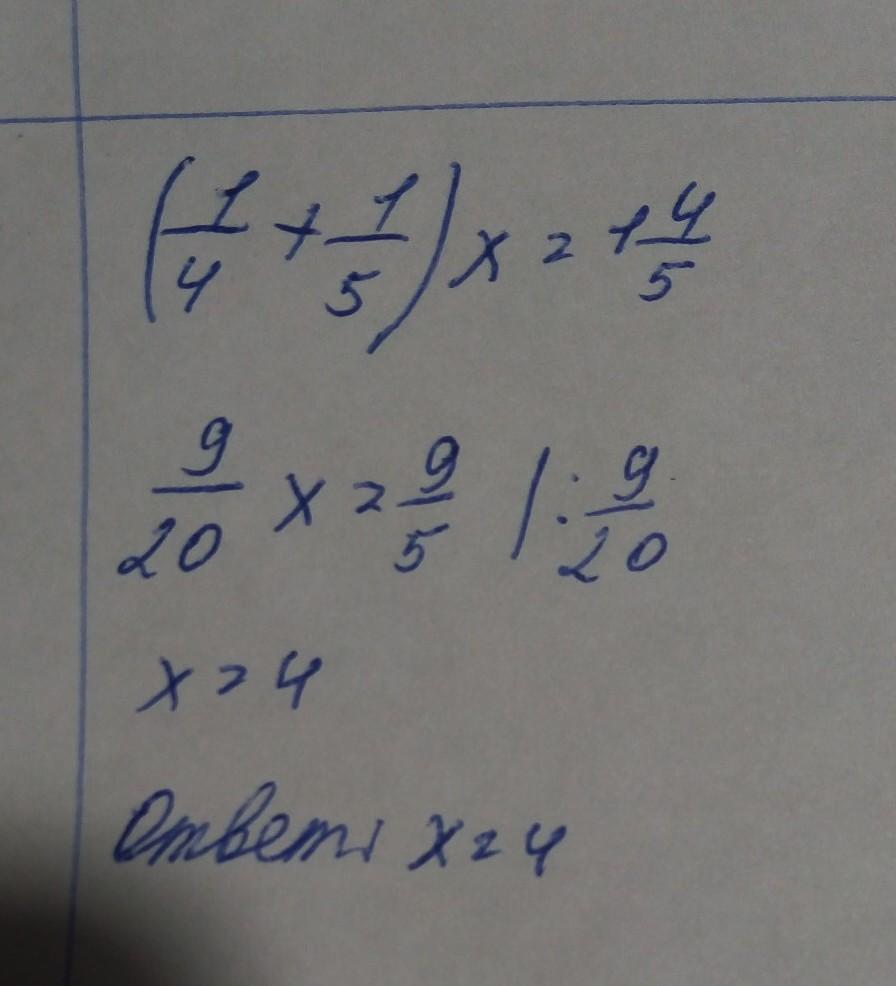 (1/4 + 1/5) x = 1 4/5
9/20 x = 9/5 | : 9/20
x = 4
Ответ: x = 4